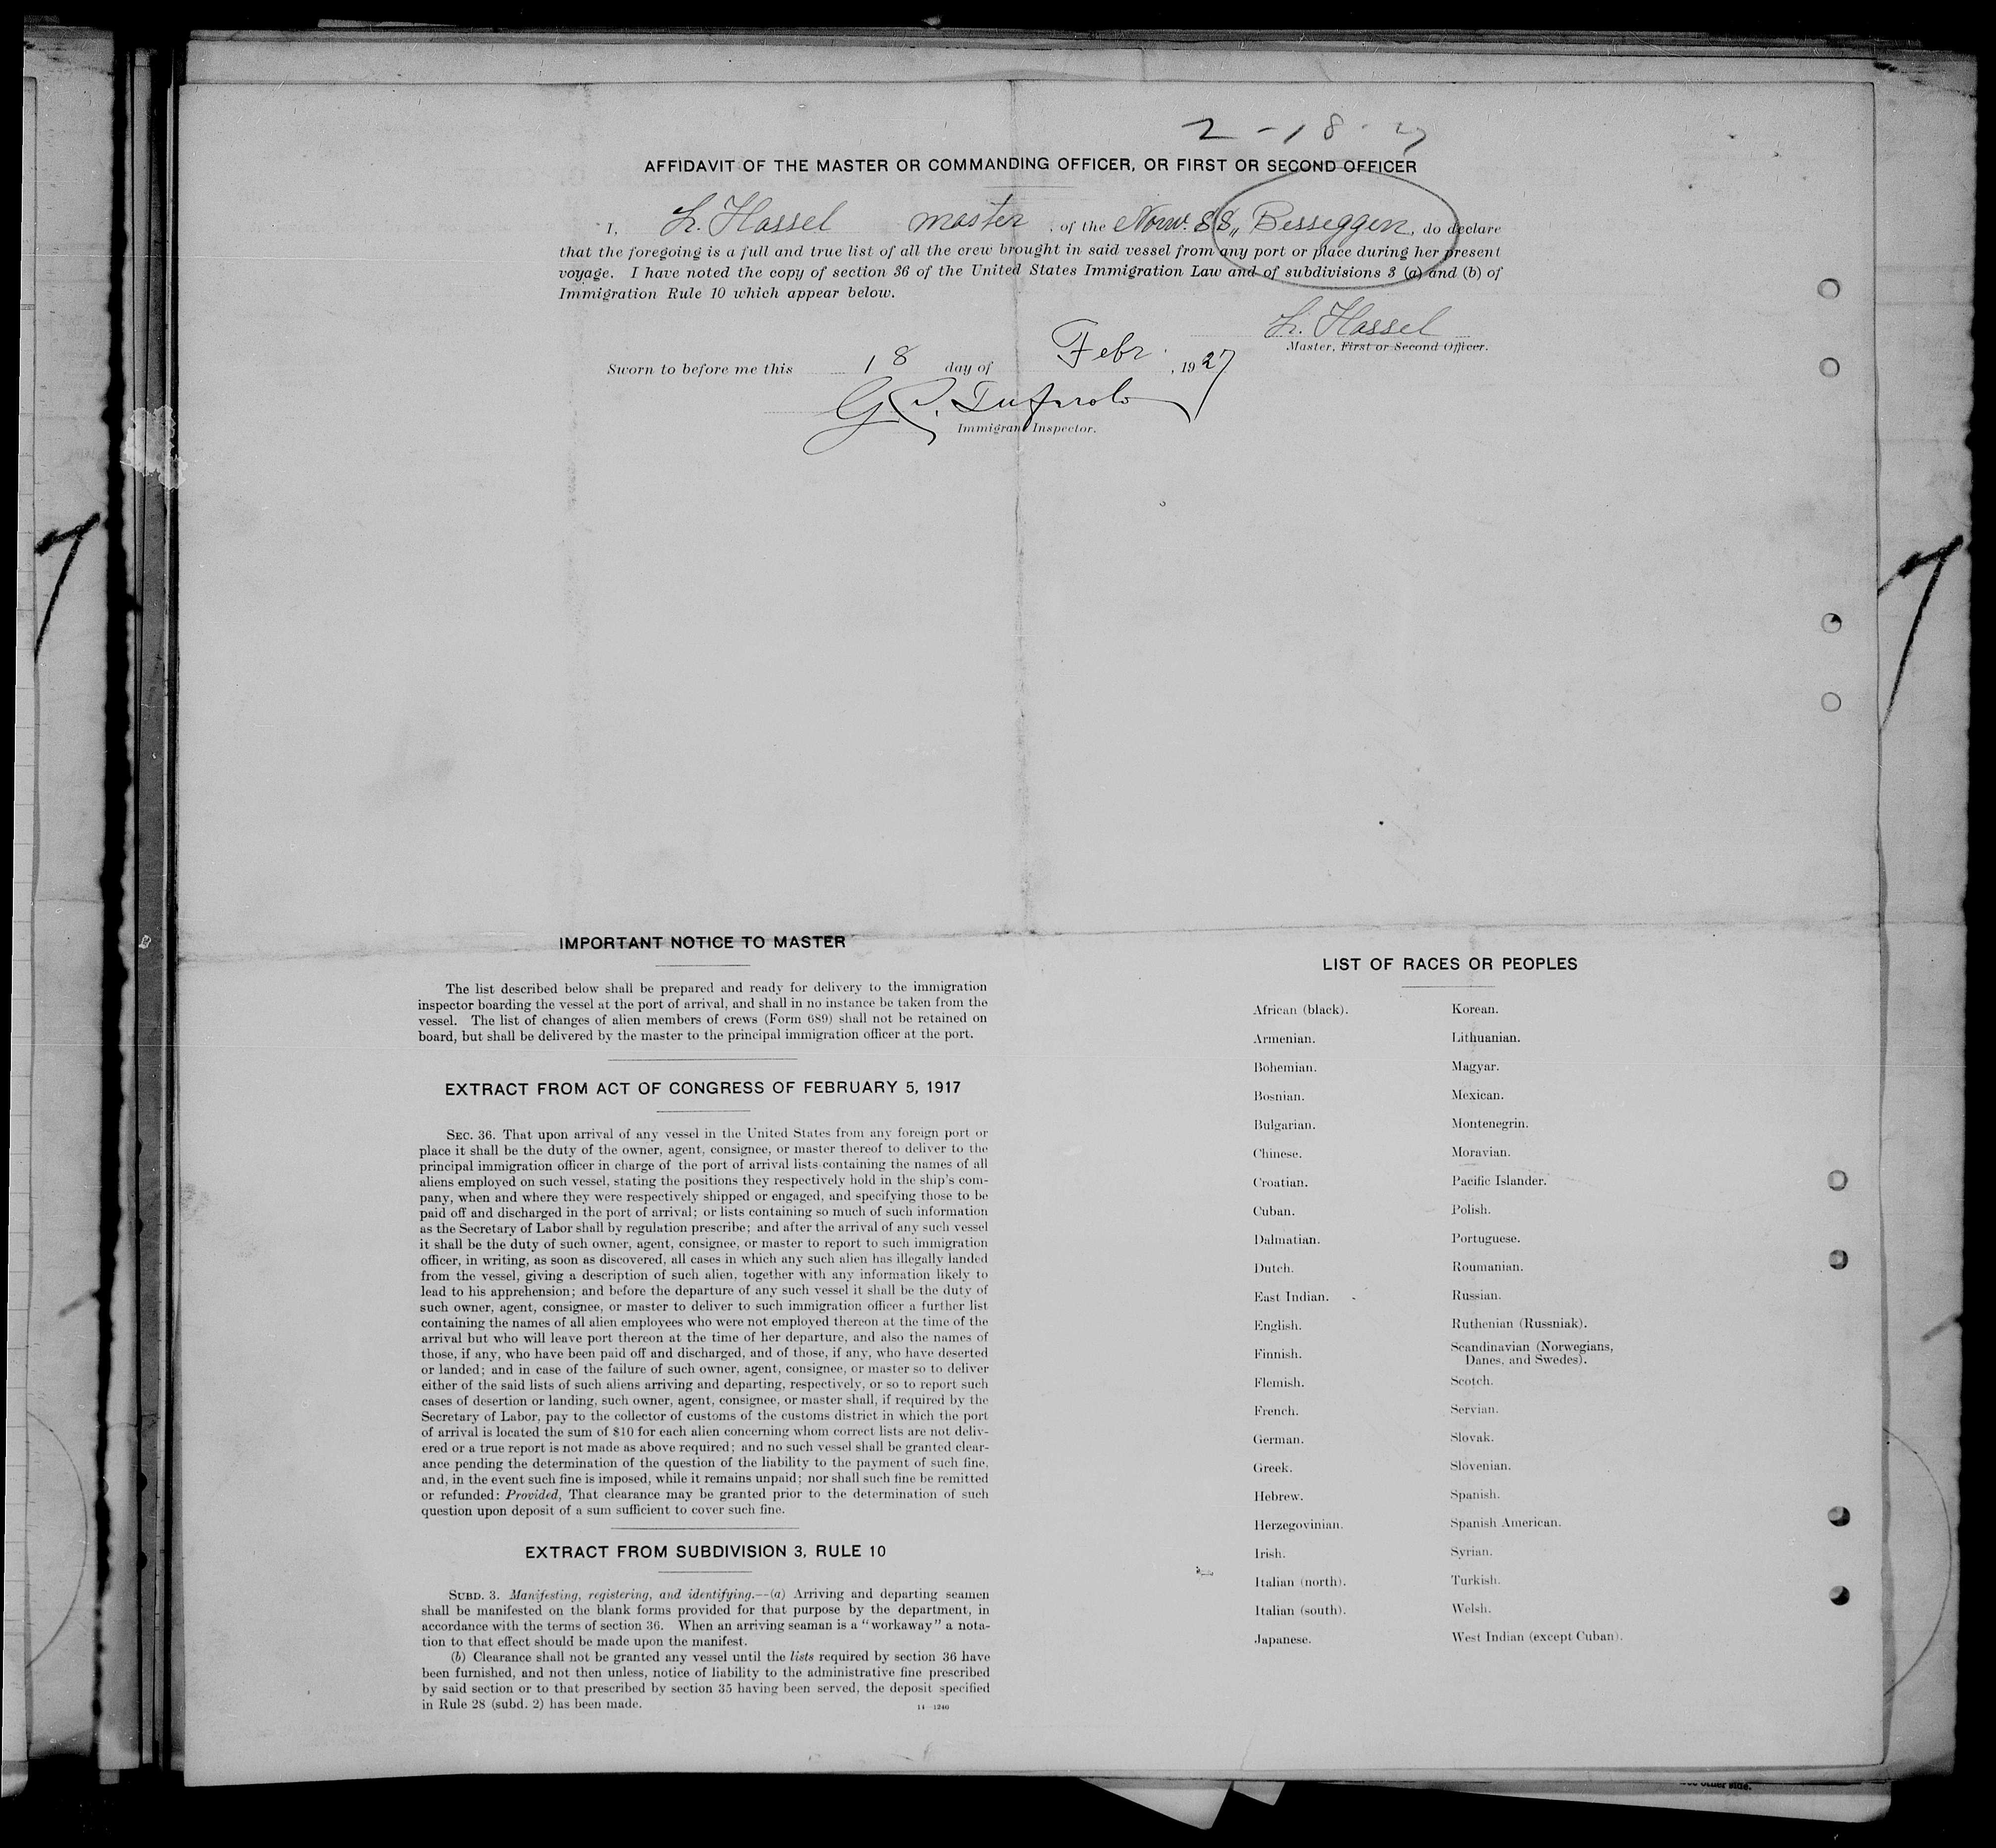 2-18-27
AFFIDAVIT OF THE MASTER OR COMMANDING OFFICER, OR FIRST OR SECOND OFFICER
I, L. Hassel master, of the Norw. SS „Besseggen, do declare
that the foregoing is a full and true list of all the crew brought in said vessel from any port or place during her present
voyage. I have noted the copy of section 36 of the United States Immigration Law and of subdivisions 3 (a) and (b) of
Immigration Rule 10 which appear below.
L. Hassel
Master, First or Second Officer.
Sworn to before me this 18 day of Febr., 1927
Immigrant Inspector.
IMPORTANT NOTICE TO MASTER
The list described below shall be prepared and ready for delivery to the immigration
inspector boarding the vessel at the port of arrival, and shall in no instance be taken from the
vessel. The list of changes of alien members of crews (Form 689) shall not be retained on
board, but shall be delivered by the master to the principal immigration officer at the port.
EXTRACT FROM ACT OF CONGRESS OF FEBRUARY 5, 1917
SEC. 36. That upon arrival of any vessel in the United States from any foreign port or
place it shall be the duty of the owner, agent, consignee, or master thereof to deliver to the
principal immigration officer in charge of the port of arrival lists containing the names of all
aliens employed on such vessel, stating the positions they respectively hold in the ship's com-
pany, when and where they were respectively shipped or engaged, and specifying those to be
paid off and discharged in the port of arrival; or lists containing so much of such information
as the Secretary of Labor shall by regulation prescribe; and after the arrival of any such vessel
it shall be the duty of such owner, agent, consignee, or master to report to such immigration
officer, in writing, as soon as discovered, all cases in which any such alien has illegally landed
from the vessel, giving a description of such alien, together with any information likely to
lead to his apprehension; and before the departure of any such vessel it shall be the duty of
such owner, agent, consignee, or master to deliver to such immigration officer a further list
containing the names of all alien employees who were not employed thereon at the time of the
arrival but who will leave port thereon at the time of her departure, and also the names of
those, if any, who have been paid off and discharged, and of those, if any, who have deserted
or landed; and in case of the failure of such owner, agent, consignee, or master so to deliver
either of the said lists of such aliens arriving and departing, respectively, or so to report such
cases of desertion or landing, such owner, agent, consignee, or master shall, if required by the
Secretary of Labor, pay to the collector of customs of the customs district in which the port
of arrival is located the sum of $10 for each alien concerning whom correct lists are not deliv-
ered or a true report is not made as above required; and no such vessel shall be granted clear-
ance pending the determination of the question of the liability to the payment of such fine,
and, in the event such fine is imposed, while it remains unpaid; nor shall such fine be remitted
or refunded: Provided, That clearance may be granted prior to the determination of such
question upon deposit of a sum sufficient to cover such fine.
EXTRACT FROM SUBDIVISION 3, RULE 10
SUBD. 3. Manifesting, registering, and identifying.—(a) Arriving and departing seamen
shall be manifested on the blank forms provided for that purpose by the department, in
accordance with the terms of section 36. When an arriving seaman is a "workaway" a nota-
tion to that effect should be made upon the manifest.
(b) Clearance shall not be granted any vessel until the lists required by section 36 have
been furnished, and not then unless, notice of liability to the administrative fine prescribed
by said section or to that prescribed by section 35 having been served, the deposit specified
in Rule 28 (subd. 2) has been made.
14—1240
LIST OF RACES OR PEOPLES
African (black).
Armenian.
Bohemian.
Bosnian.
Bulgarian.
Chinese.
Croatian.
Cuban.
Dalmatian.
Dutch.
East Indian.
English.
Finnish.
Flemish.
French.
German.
Greek.
Hebrew.
Herzegovinian.
Irish.
Italian (north).
Italian (south).
Japanese.
Korean.
Lithuanian.
Magyar.
Mexican.
Montenegrin.
Moravian.
Pacific Islander.
Polish.
Portuguese.
Roumanian.
Russian.
Ruthenian (Russniak).
Scandinavian (Norwegians,
Danes, and Swedes).
Scotch.
Servian.
Slovak.
Slovenian.
Spanish.
Spanish American.
Syrian.
Turkish.
Welsh.
West Indian (except Cuban).
other side.